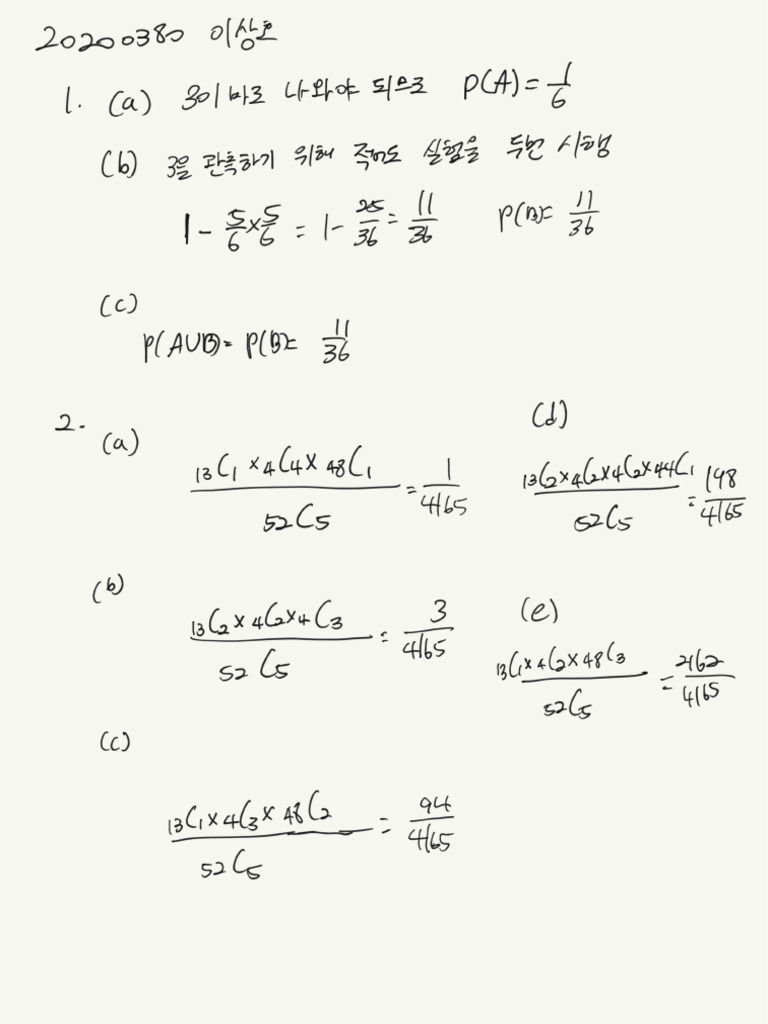 20200380 이상호
1. (a) 3이 바로 나와야 되므로 P(A)=1/6
(b) 3을 관측하기 위해 적어도 실험을 두번 시행
1 - 5/6 × 5/6 = 1 - 25/36 = 11/36 P(B)= 11/36
(c)
P(A∪B)= P(B)= 11/36
2.
(a)
13C1 × 4C4 × 48C1 / 52C5 = 1/4165
(b)
13C2 × 4C2 × 4C3 / 52C5 = 3/4165
(c)
13C1 × 4C3 × 48C2 / 52C5 = 94/4165
(d)
13C2 × 4C2 × 4C2 × 44C1 / 52C5 = 198/4165
(e)
13C1 × 4C2 × 48C3 / 52C5 = 2162/4165